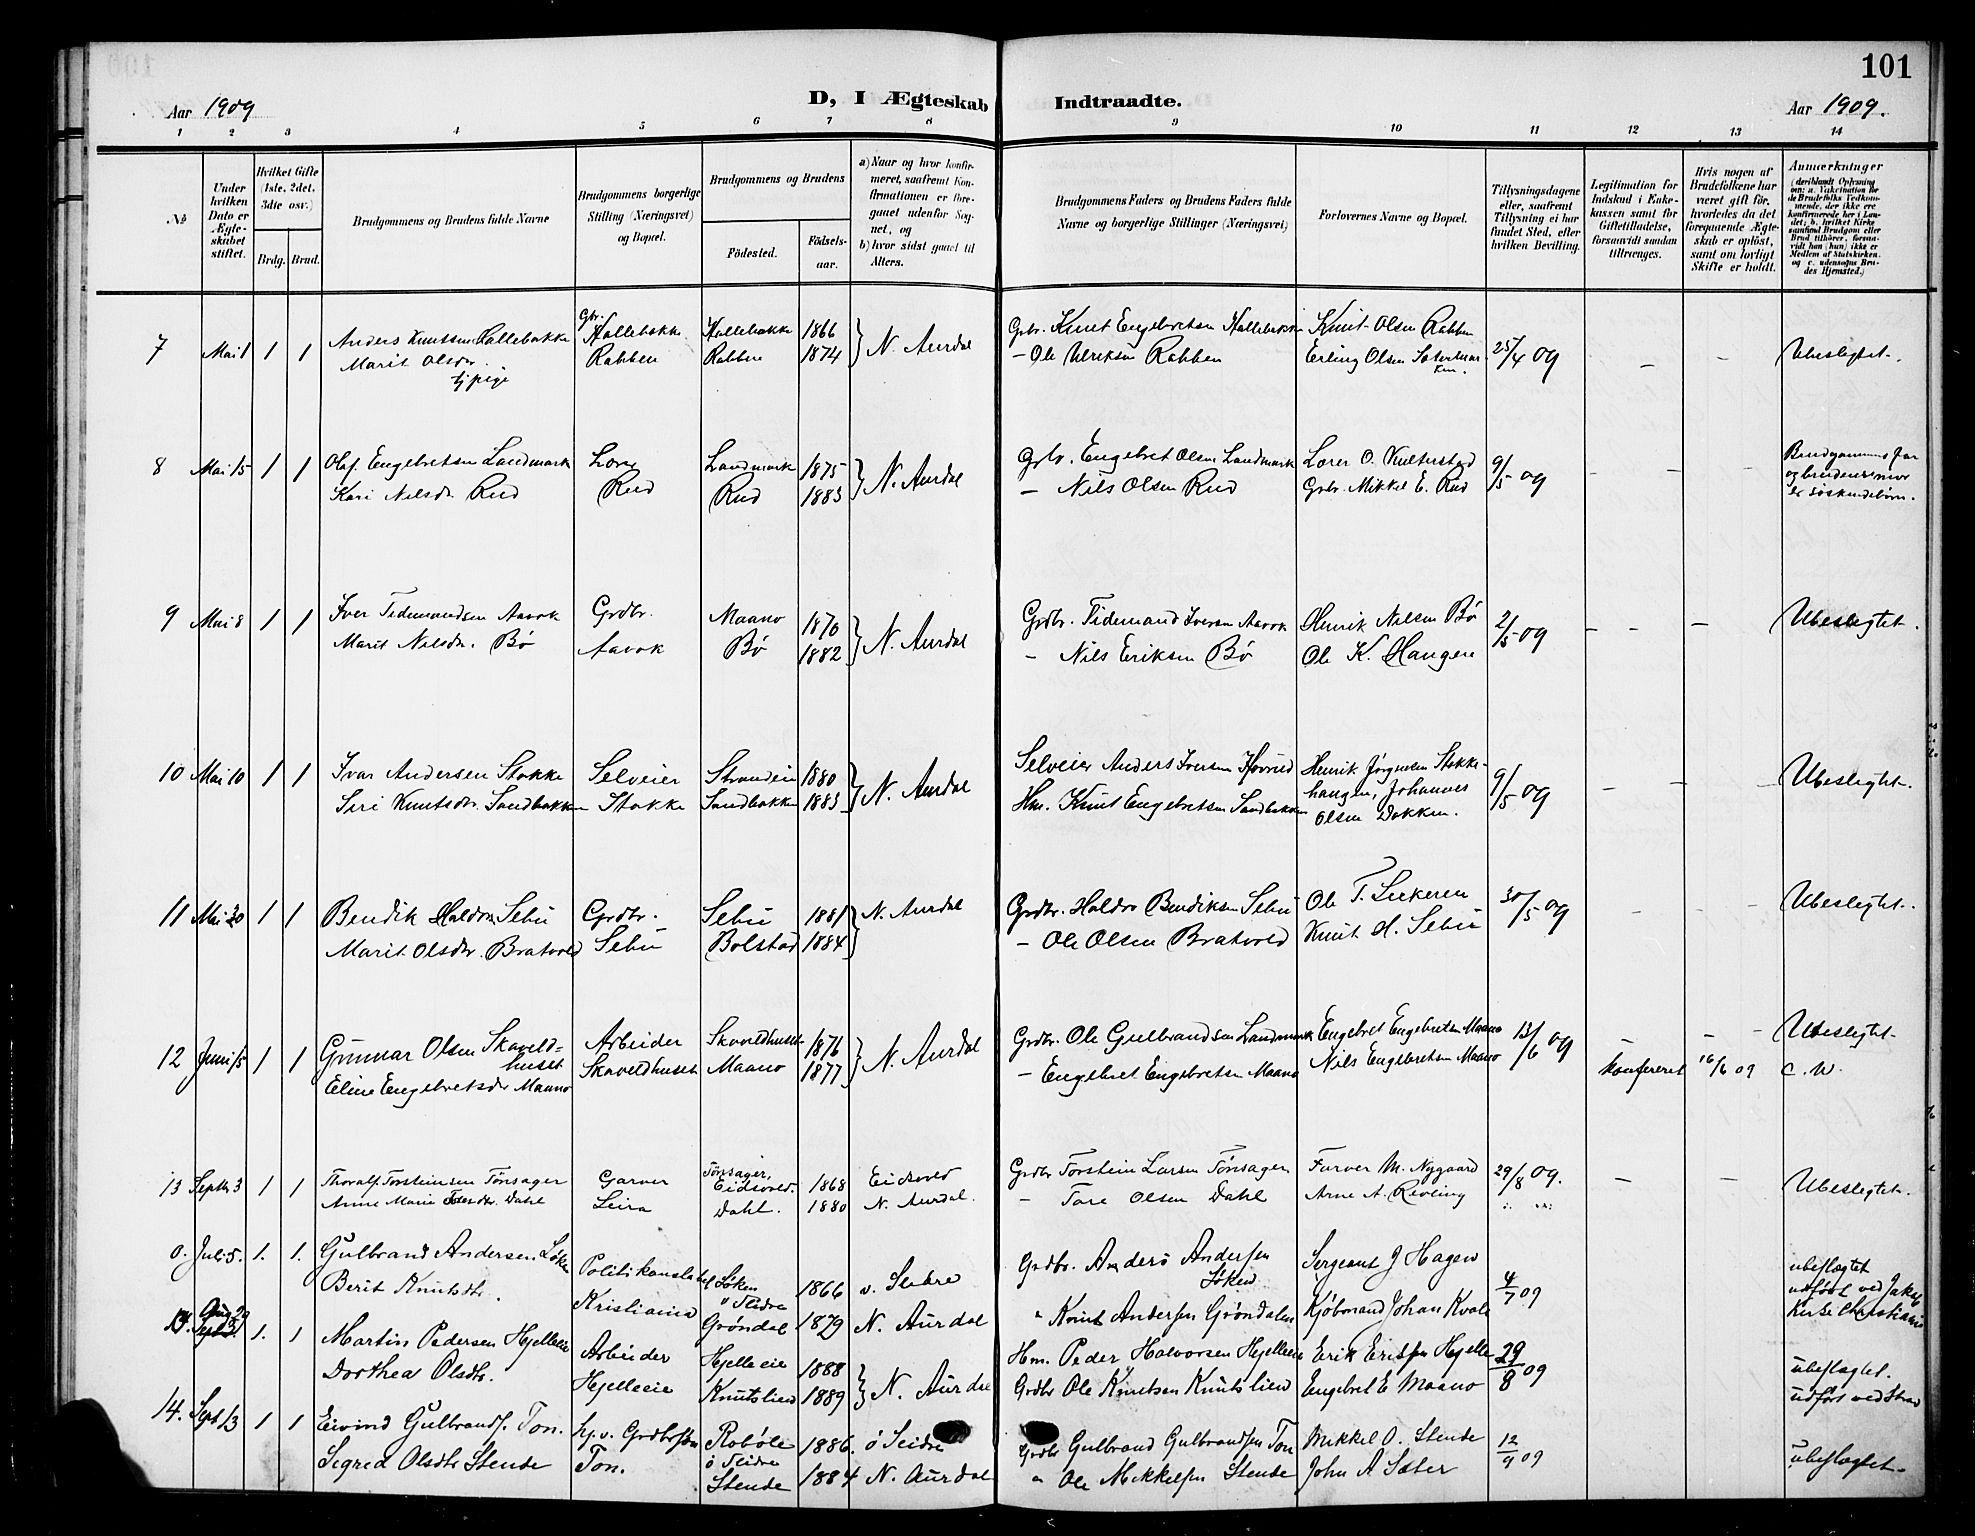 101
Aar 1909
D, I Ægteskab Indtraadte.
Aar 1909.
1 2 3 4 5 6 7 8 9 10 11 12 13 14
No
Under hvilken Dato er Ægteskabet stiftet.
Hvilket Gifte (1ste, 2det, 3die osv.)
Brdg. Brud.
Brudgommens og Brudens fulde Navne
Brudgommens borgerlige Stilling (Næringsvei) og Bopæl.
Brudgommens og Brudens
Fødested.
Fødselsaar.
a) Naar og hvor konfirmeret, saafremt Konfirmationen er foregaaet udenfor Sognet, og
b) hvor sidst gaaet til Alters.
Brudgommens Faders og Brudens Faders fulde Navne og borgerlige Stillinger (Næringsvei)
Forlovernes Navne og Bopæl.
Tillysningsdagene eller, saafremt Tillysning ei har fundet Sted, efter hvilken Bevilling.
Legitimation for Indskud i Enkekassen samt for Giftetilladelse, forsaavidt saadan tiltrænges.
Hvis nogen af Brudefolkene har været gift før, hvorledes da det foregaaende Ægteskab er opløst, samt om lovligt Skifte er holdt.
Anmærkninger
(deriblandt Oplysning om: a. Vakcination for de Brudefolks Vedkommende, der ikke ere konfirmerede her i Landet; b. hvilket Kirkesamfund Brudgom eller Brud tilhører, forsaavidt han (hun) ikke er Medlem af Statskirken, og c. udensogns Brudes Hjemsted.)
7 Mai 1 1 1 Anders Knutsen Hallebakke Gbr. Hallebakke Hallebakke 1866 N. Aurdal Grbr. Knut Engebretsen Hallebakken Knut Olsen Rabben 25/4 09 - - Ubeslegtet.
Marit Olsdr. Rabben Rabben 1874 - Ole Ulriksen Rabben Erling Olsen
tj pige
8 Mai 15 1 1 Olaf Engebretsen Landmark Landmark 1875 N. Aurdal Grbr. Engebret Olsen Landmark 9/5 09 - - - Brudgommens far
Kari Nilsdr. Rud Rud Rud 1883 - Nils Olsen Rud Grbr. Mikkel E. Rud og brudens mor
er søskendebørn.
9 Mai 8 1 1 Iver Tidemandsen Aavok Grdbr. Maano 1870 N. Aurdal Grdbr. Tidemand Iversen Aavok Henrik Nilsen Bø 2/5 09 - - - Ubeslegtet.
Marit Nilsdr. Bø Aavok Bø 1882 - Nils Eriksen Bø Ole K. Haugen
10 Mai 10 1 1 Ivar Andersen Stokke Selveier 1880 N. Aurdal Selveier Anders Iversen Henrik Jörgensen Stokke- 9/5 09 - - Ubeslegtet.
Siri Knutsdr. Sandbakken Stokke Sandbakken 1883 Hm. Knut Engebretsen Sandbakken haugen, Johannes
Olsen Dokken.
11 Mai 30 1 1 Bendik Haldorsn Sebu Grdbr. Sebu 1881 N. Aurdal Grdbr. Haldor Bendiksen Sebu Ole T. 30/5 09 - - - Ubeslegtet.
Marit Olsdr. Bratvold Sebu Bolstad 1884 - Ole Olsen Bratvold Knut H. Sebu
12 Juni 15 1 1 Gunnar Olsen Skaveld= Arbeider Skaveldhuset 1876 N. Aurdal Grdbr. Ole Gulbrandsen Landmark Engebret Engebretsen Maano 13/6 09 - - - Ubeslegtet.
huset Skaveldhuset Maano 1877 - Engebret Engebretsen Maano Nils Engebretsen Maano konfereret 16/6 09 C. W.
Eline Engebretsdr Maano
13 Septbr 3 1 1 Thoralf Torsteinsen Tönsager Garver Tönsager, Eidsvold. 1868 Eidsvold Grdbr Torstein Larsen Tönsagen Farver M. Nygaard 29/8 09. - - Ubeslegtet.
Anne Marie Toresdr. Dahl Leira Dahl. 1880 N. Aurdal. - Tore Olsen Dahl Arne A.
0. Juli 5. 1. 1. Gulbrand Andersen Løken Politikonstabel Løken ø Slidre 1866 v. Slidre Grdbr. Anders Andersen Løken Sergeant J Hagen 4/7 09 ubeslægtet
Berit Knutsdtr. Kristiania Grøndal 1879 N. Aurdal " Knut Andersen Grøndalen Kjøbmand Johan Kvale udført ved Jakobs
Kirke Christiania
Aug 29 1. 1 Martin Pedersen Hjelleeie Arbeider Hjelleeie 1888 N. Aurdal Hm. Peder Halvorsen Hjelleeie Erik Eriksen Hjelle 29/8 09 ubeslægtet.
Dorthea Olsdtr. Hjelleeie Knutslien 1889 Grdbr Ole Knutsen Knutslien Engebret E Maano udført ved Strand
14. Sept 13 1 1 Eivind Gulbrands. Ton. hj.v. Grdbrsøn Robøle ø Slidre 1886. ø Slidre Grdbr Gulbrand Gulbrandsen Ton Mikkel O. Stende 12/9 09 ubeslægtet.
Segred Olsdtr Stende Ton. Stende 1884 N. Aurdal " Ole Mikkelsen Stende John A Sæter